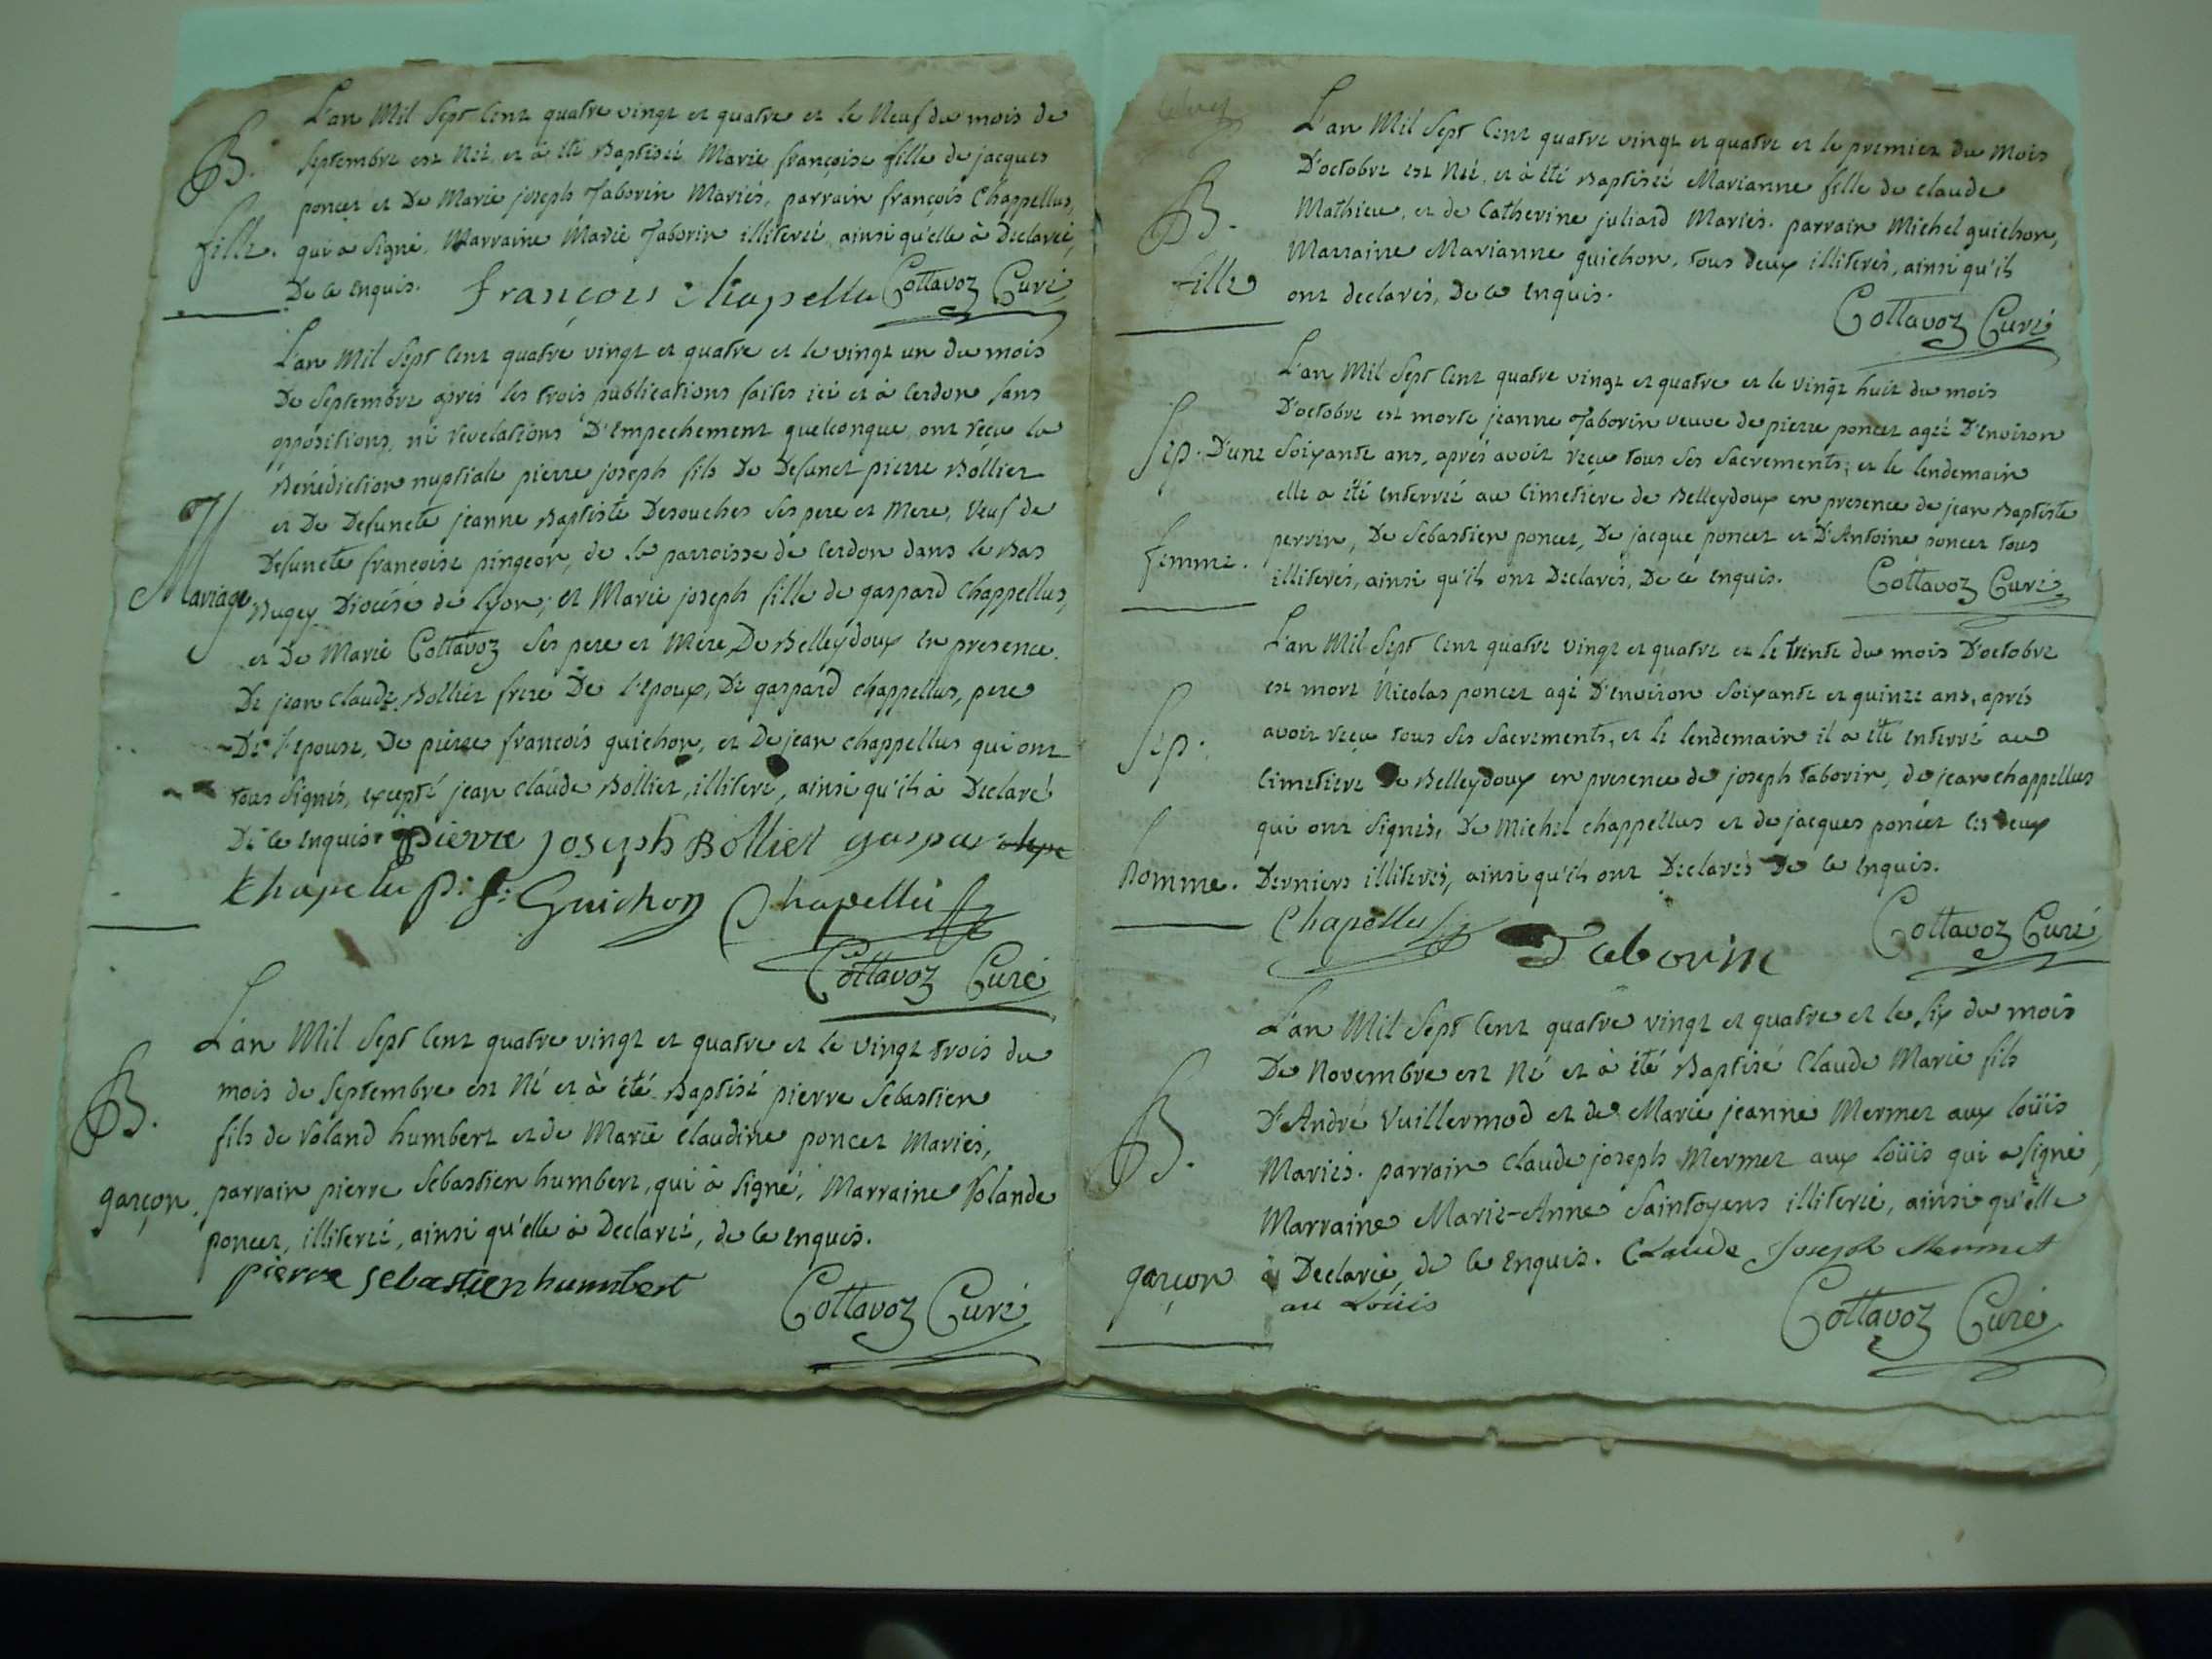 L'an Mil Sept Cent quatre vingt et quatre et le Neuf du mois de
B. Septembre est Née et à été Baptiséé Marie françoise fille de jacques
poncet et De Marie joseph Taborin Mariés, parrain françois Chappellus,
fille. qui a signé, Marraine Marie Taborin illiteréé ainsi qu'elle à Declaréé,
De ce Enquis. françois Chapellu Cottavoz Curé
L'an Mil Sept Cent quatre vingt et quatre et le vingt un du mois
De Septembre aprés les trois publications faites ici et à Cerdon sans
oppositions, ni revelations D'Empechement quelconque ont reçu la
Bénédiction nuptiale pierre joseph fils De Defunct pierre Bollier
et De Defuncte jeanne Baptiste Desouches ses pere et Mere, Veuf de
Defuncte françoise pingeon, de la parroisse de Cerdon dans le Bas
Mariage Bugey Diocése de Lyon; et Marie joseph fille de gaspard Chappellus,
et De Marie Cottavoz ses pere et Mere, De Belleydoux En presence
De jean Claude Bollier frere De l'Epoux, De gaspard chappellus, pere
De l'Epouse, De pierre françois guichon, et De jean chappellus qui ont
tous signés, excepté jean claude Bollier, illiteré, ainsi qu'il à Declaré
De ce Enquis. pierre joseph Bolliet gaspar
Chapellu p: f: Guichon Chapellu
Cottavoz Curé
L'an Mil Sept Cent quatre vingt et quatre et le vingt trois du
mois de Septembre est Né et à été Baptisé pierre Sebastien
B. fils de Roland humbert et de Marie claudine poncet Mariés,
garçon, parrain pierre Sebastien humbert, qui à signé, Marraine Rolande
poncet, illiteréé, ainsi qu'elle à Declaréé, de ce Enquis.
pierre sebastien humbert
Cottavoz Curé
L'an Mil Sept Cent quatre vingt et quatre et le premier du Mois
D'octobre est Néé et à été Baptiséé Marianne fille de claude
B. Mathieu, et de Catherine juliard Mariés. parrain Michel guichon,
Marraine Marianne guichon, tous deux illiterés, ainsi qu'ils
fille ont declarés, De ce Enquis.
Cottavoz Curé
L'an Mil Sept Cent quatre vingt et quatre et le vingt huit du mois
D'octobre est morte jeanne Taborin veuve de pierre poncet agéé D'Environ
Sep. D'une Soixante ans, aprés avoir reçu tous ses Sacrements; et le lendemain
elle a été Enterréé au Cimetiere de Belleydoux en presence de jean Baptiste
femme. perrin, De Sebastien poncet, De jacque poncet et D'Antoine poncet tous
illiterés, ainsi qu'ils ont Declarés, De cé Enquis. Cottavoz Curé
L'an Mil Sept Cent quatre vingt et quatre et le trente du mois D'octobre
est mort Nicolas poncet agé D'Environ soixante et quinze ans, aprés
Sep. avoir reçu tous ses Sacrements, et le lendemain il a été Enterré au
Cimetiere de Belleydoux en presence de joseph taborin, de jean chappellus
qui ont signés, De Michel chappellus et de jacques poncet les deux
homme. Derniers illiterés, ainsi qu'ils ont Declarés De ce Enquis.
Chapellu Taborin Cottavoz Curé
L'an Mil Sept Cent quatre vingt et quatre et le six du mois
De Novembre est Né et à été Baptisé Claude Marie fils
B. D'André Vuillermod et de Marie jeanne Mermet aux loüis
Mariés. parrain claude joseph Mermet aux Loüis qui a signé,
Marraine Marie-Anne Saintoyens illiteréé, ainsi qu'elle
garçon à Declaréé, de ce Enquis. Claude Joseph Mermet
au Loüis
Cottavoz Curé